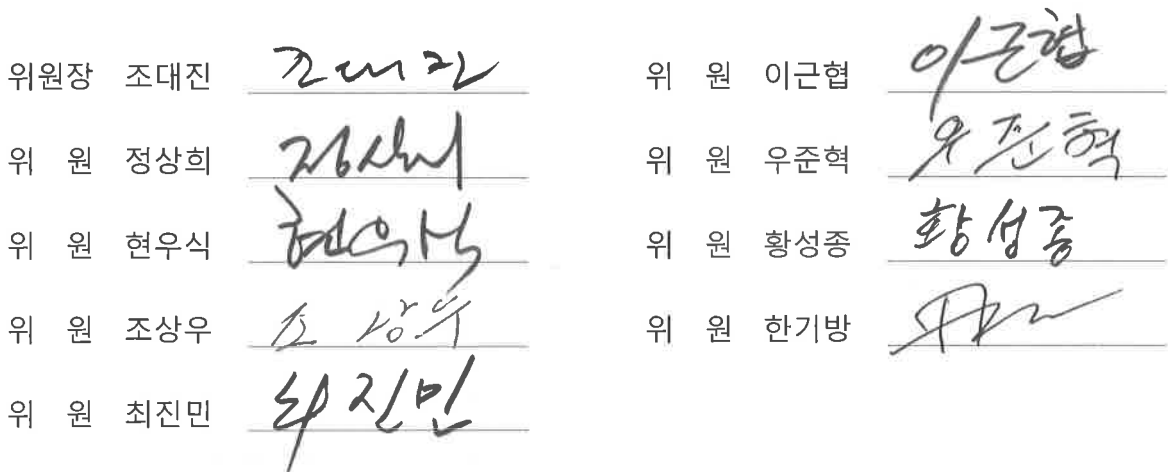 위원장 조대진 조대진
위 원 정상희 정상희
위 원 현우식 현우식
위 원 조상우 조상우
위 원 최진민 최진민
위 원 이근협 이근협
위 원 우준혁 우준혁
위 원 황성종 황성종
위 원 한기방